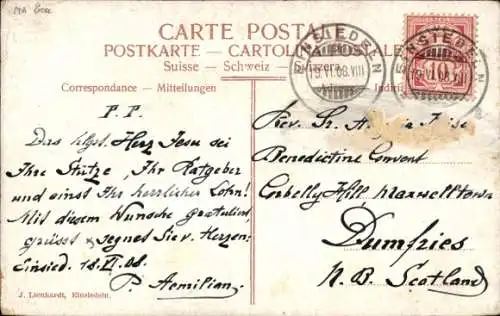 CARTE POSTALE
POSTKARTE — CARTOLINA POSTALE
Suisse — Schweiz — Svizzera
Correspondance — Mitteilungen
EINSIEDELN
19.VI.08.VIII
EINSIEDELN
19.VI.08.VIII
10
P. P.
Das hlgst. Herz Jesu sei
Ihre Stütze, Ihr Ratgeber
und einst Ihr herrlicher Lohn!
Mit diesem Wunsche gratuliert
grüsst & segnet Sie v. Herzen
Einsied. 18.VI.08.
P. Aemilian.
Rev. Sr.
Benedictine Convent
Corbelly Hill Maxwelltown
Dumfries
N. B. Scotland
J. Lienhardt, Einsiedeln.